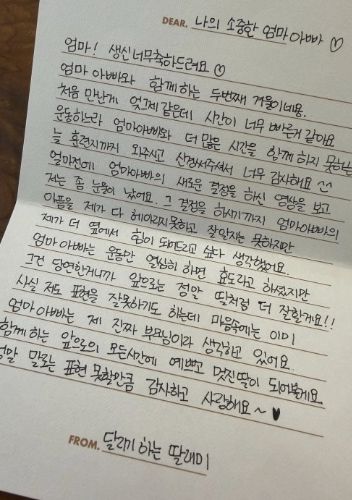 DEAR. 나의 소중한 엄마 아빠 ♡
엄마! 생신 너무 축하드려요 ♡
엄마 아빠와 함께 하는 두번째 겨울이네용.
처음 만난게 엊그제 같은데 시간이 너무 빠른거 같아요
운동하느라 엄마아빠와 더 많은 시간을 함께 하지 못하는데
늘 훈련지까지 와주시고 신경써주셔서 너무 감사해요
얼마전에 엄마아빠의 새로운 결정을 하신 영상을 보고
저는 좀 눈물이 났어요. 그 결정을 하시기까지 엄마아빠의
아픔을 제가 다 헤아리지 못하고 잘알지는 못하지만
제가 더 옆에서 힘이 되어드리고 싶다 생각했어요.
엄마 아빠는 운동만 열심히 하면 효도라고 하셨지만
그건 당연한거니까 앞으로는 정말 딸처럼 더 잘할게요!!
사실 저도 표현을 잘못하기도 하는데 마음속에는 이미
엄마아빠는 제 진짜 부모님이라 생각하고 있어요.
함께 하는 앞으로의 모든시간에 예쁘고 멋진딸이 되어볼게요.
정말 말로는 표현 못할만큼 감사하고 사랑해요~ ♥
FROM. 달리기 하는 딸래미